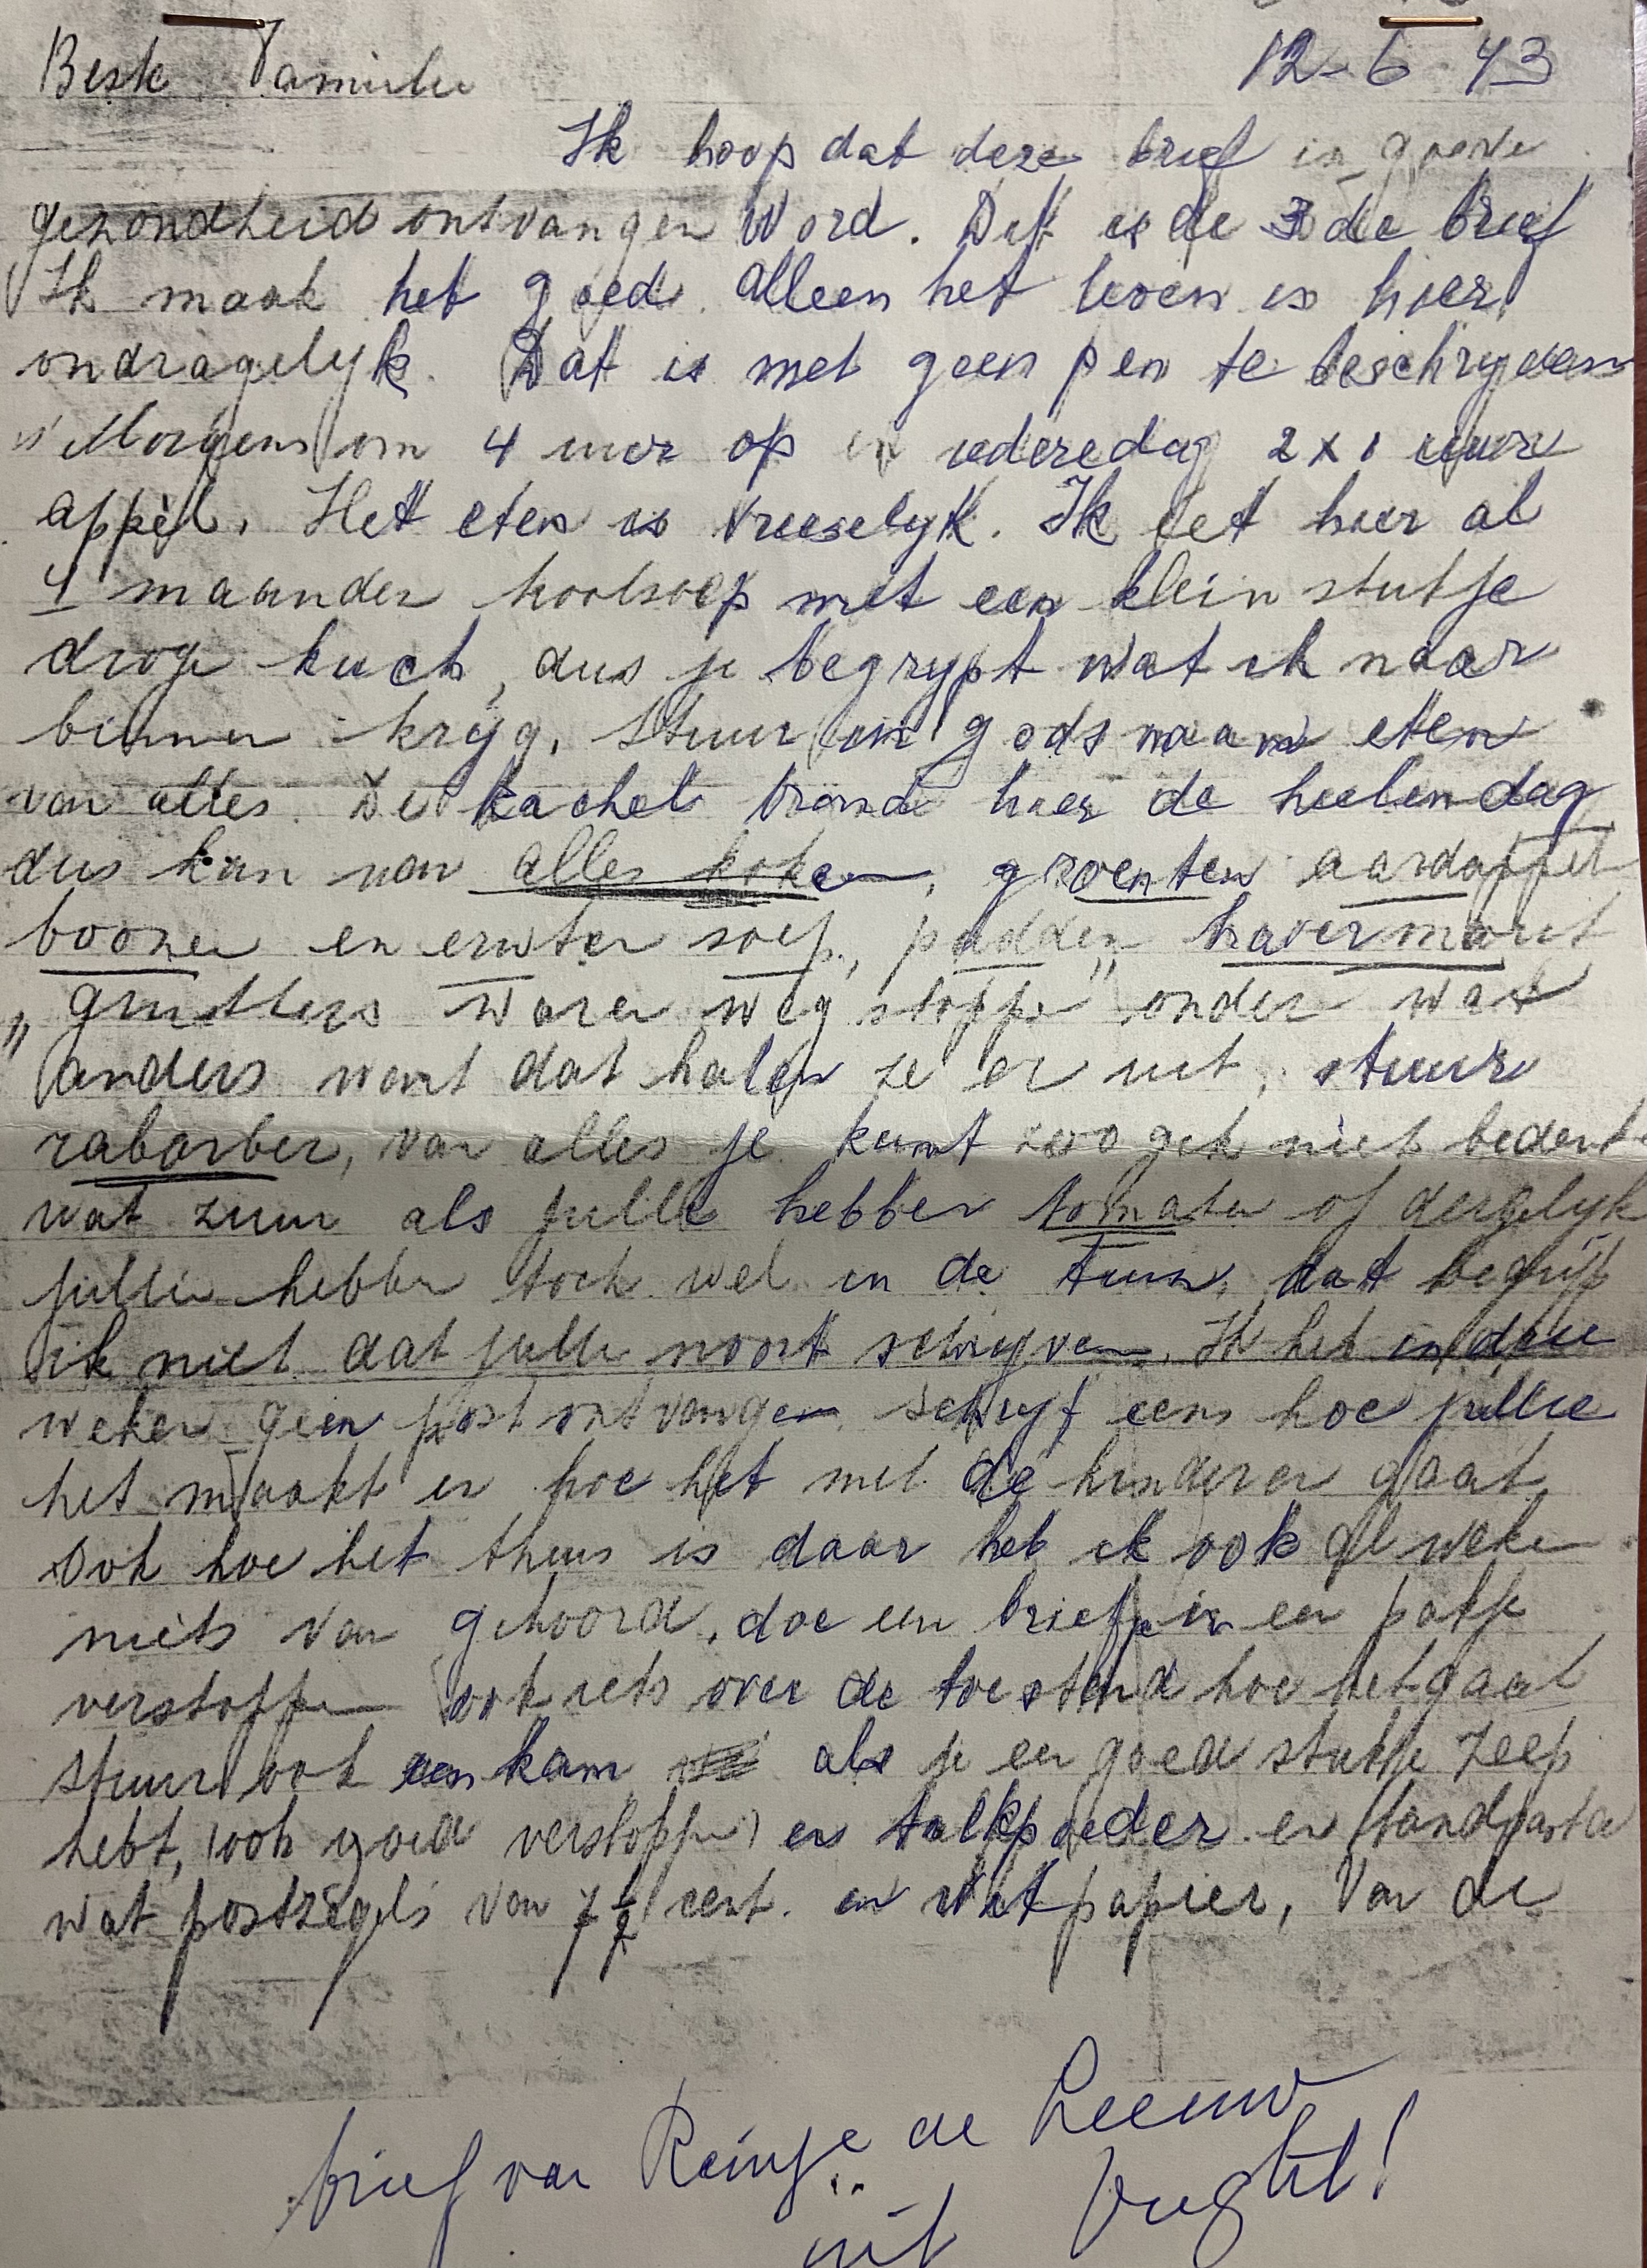 Beste Familie 12-6-43
Ik hoop dat deze brief in goede
gezondheid ontvangen word. Dit is de 3de brief
Ik maak het goed. Alleen het leven is hier
ondragelyk. Dat is met geen pen te beschryven
's Morgens om 4 uur op en iederedag 2 x 1 uur
appèl. Het eten is vreeselyk. Ik eet hier al
4 maanden koolsoep met een klein stukje
droge kuch, dus je begrypt wat ik naar
binnen kryg. Stuur in gods naam eten
van alles. De kachel brand hier de heelen dag
dus kan van alles koken, groenten aardappel
boonen en erwten soep, havermout
„ waren weg stoppe" onder wat
anders want dat halen ze er uit, stuur
rabarber, van alles je kunt zoo gek niet bedenk
wat zuur als jullie hebben tomaten of dergelyk
jullie hebben toch wel in de tuin, dat begrijp
ik niet dat jullie nooit schryven. Ik heb in drie
weken geen post ontvangen schryf eens hoe jullie
het maakt en hoe het met de kinderen gaat
Ook hoe het thuis is daar heb ik ook al weken
niets van gehoord. doe een briefje in een potje
verstoppen ook iets over de toestand hoe het gaat
stuur ook een kam als je een goed stukje zeep
hebt, ook goed verstoppen en talkpoeder en tandpasta
wat postzegels van 7½ cent. en wat papier, Van de
brief van Reintje de Leeuw
uit Vught!